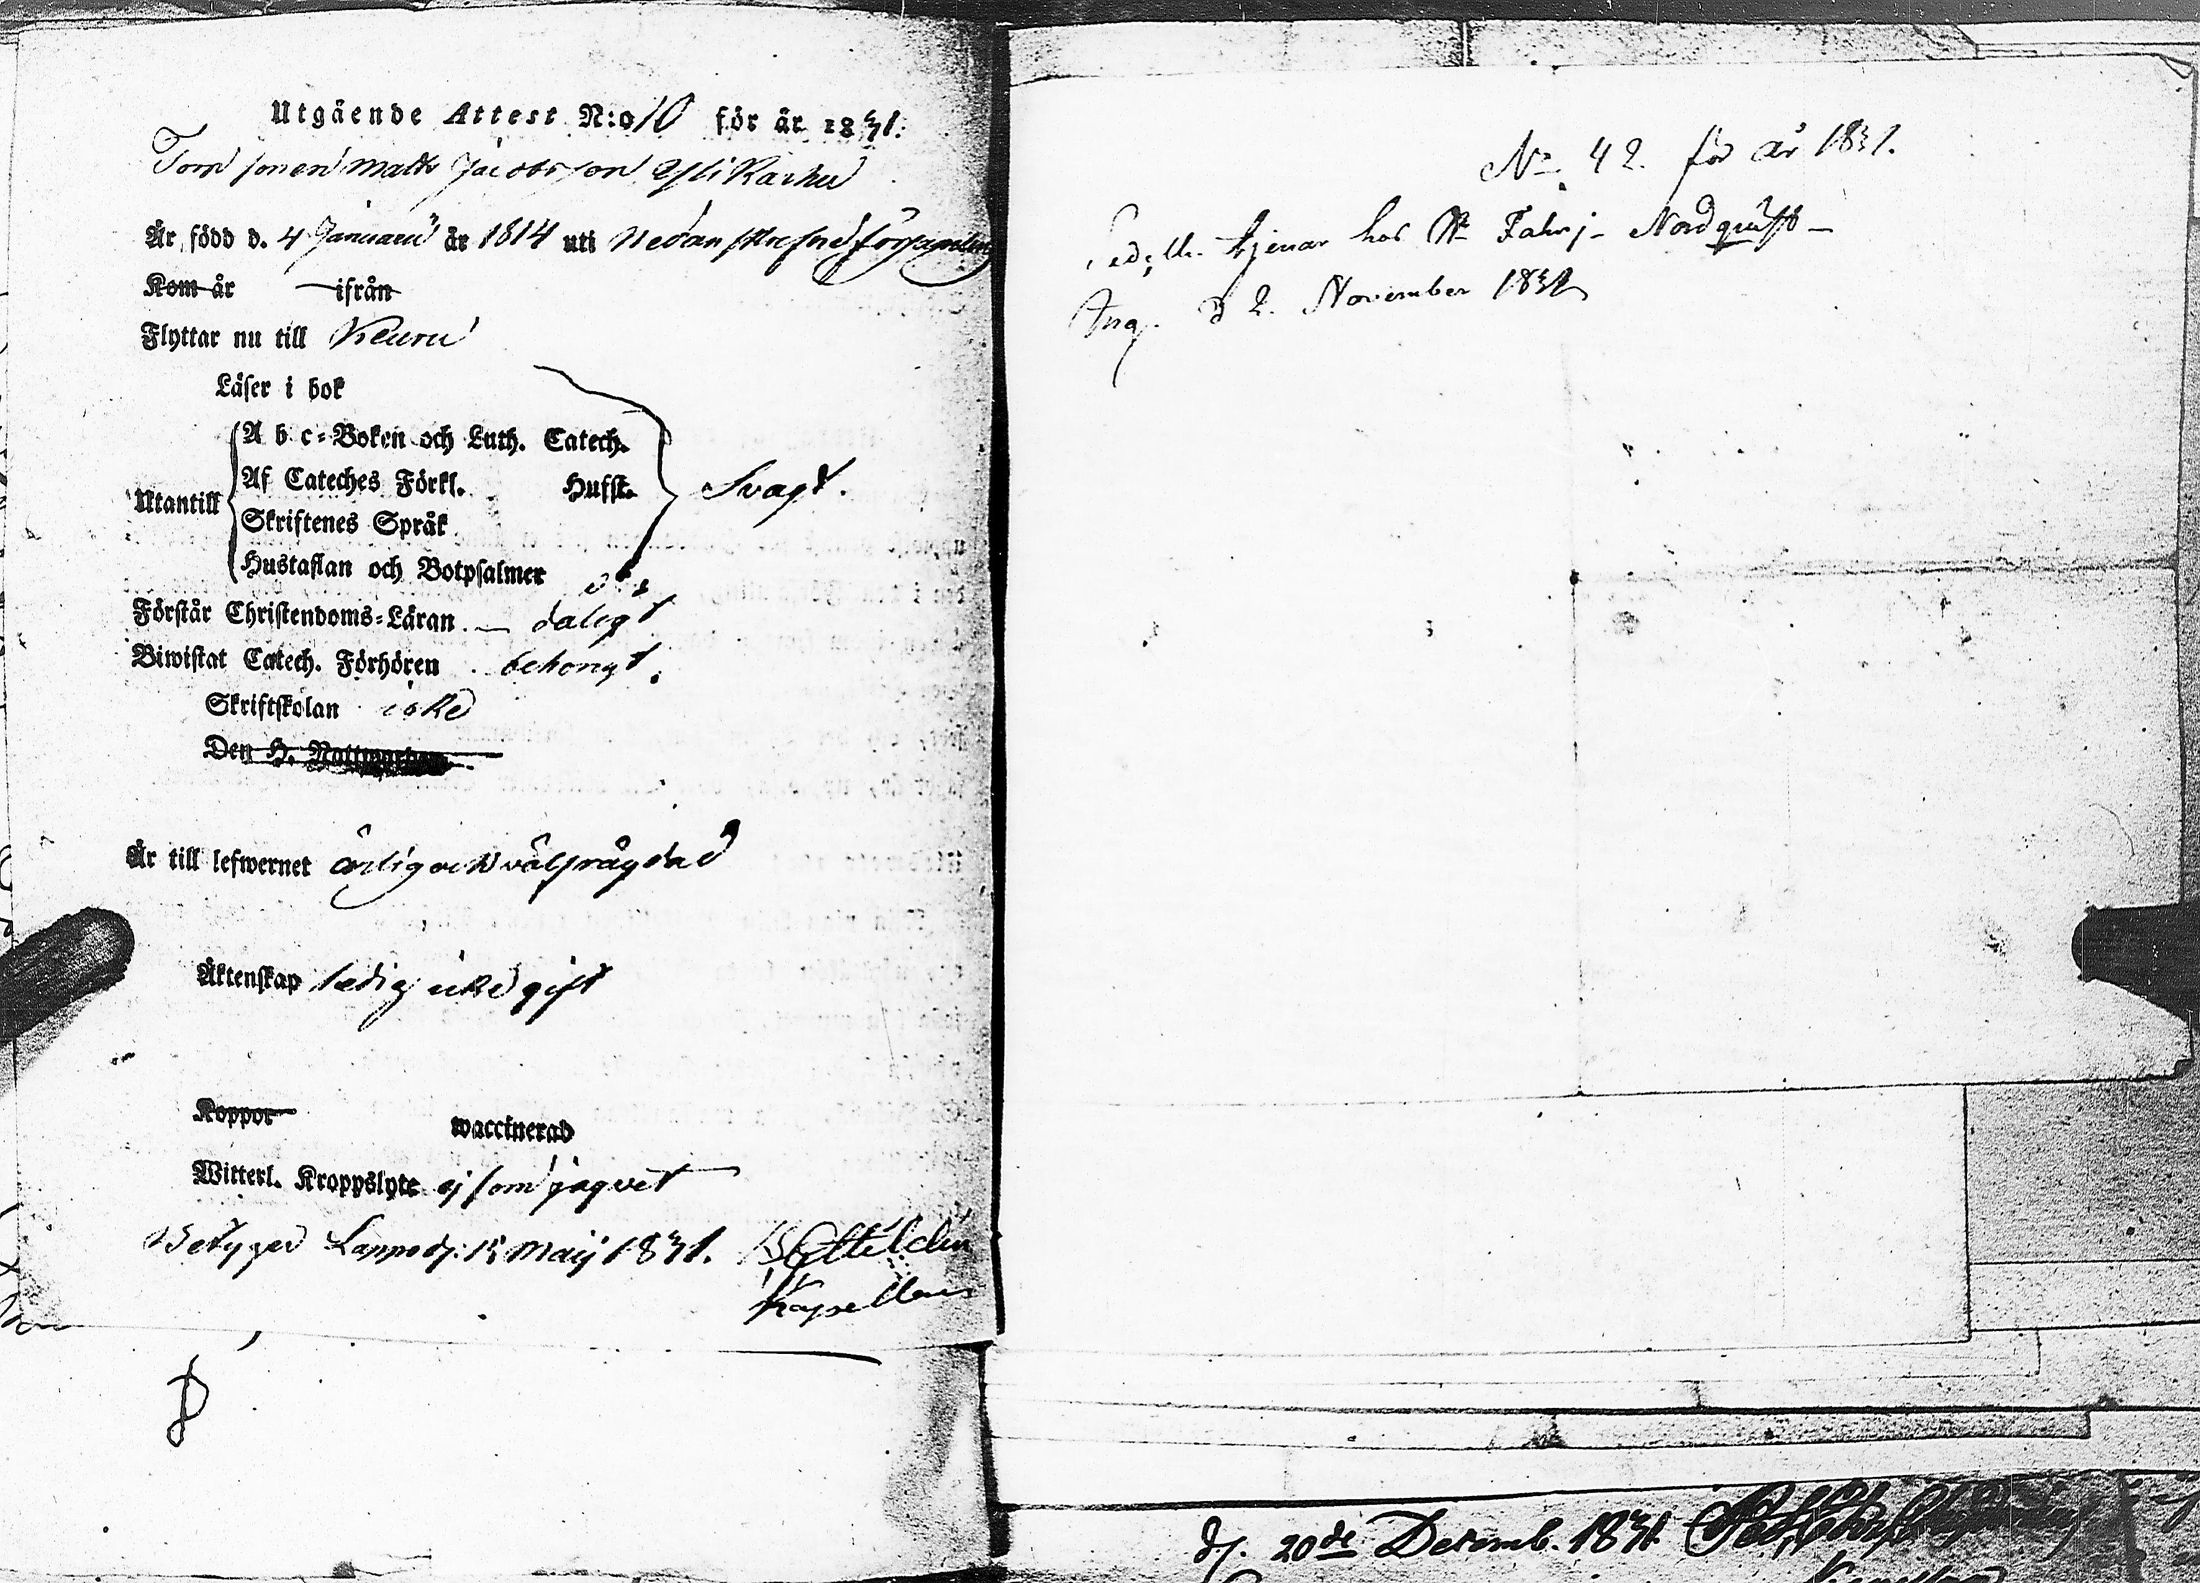 Utgående Attest N:o 10 för år 1831.
Torp sonen Matts Jacobsson Ylikarhu
Är född d. 4 Januarii år 1814 uti Nedanskrefne församling
Kom år ifrån
Flyttar nu till Keuru
Läser i bok
A b c-Boken och Luth. Catech.
Af Cateches Förkl. Hufst.
Utantill Svagt.
Skriftenes Språk
Hustaflan och Botpsalmer
Förstår Christendoms-Läran dåligt
Biwistat Catech. Förhören behörigt.
Skriftskolan icke
Den H. Nattwarden
Är till lefwernet ärlig och välfrägdad
Äktenskap ledig icke gift
Koppor waccinerad
Witterl. Kroppslyte ej som jag vet
Betyger Lappo d. 15 Maij 1831.
Kapellan
No. 42. för år 1831.
tjenar hos Nordqvist
Ing. d 2. November 1831
d. 20de Decemb. 1831